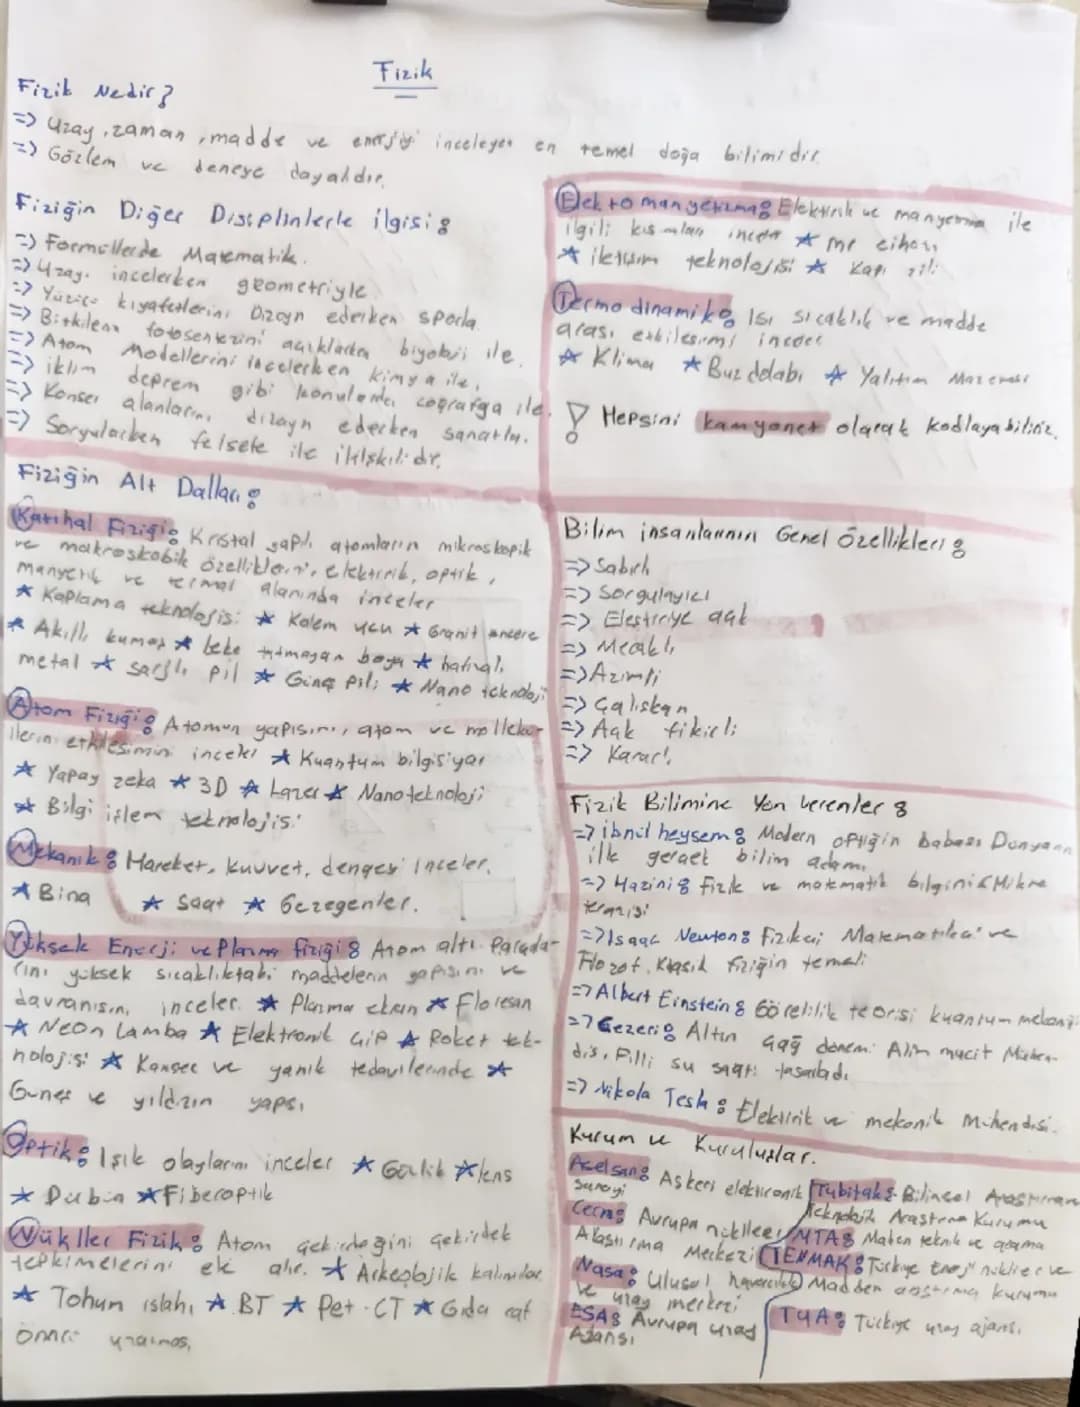 Fizik
Fizik Nedir?
=> Uzay, zaman, madde ve enerjiyi inceleyen en temel doğa bilimidir.
=> Gözlem ve deneye dayalıdır.
Fiziğin Diğer Disiplinlerle ilgisi:
=> Formüllerde Matematik.
=> Uzayı incelerken geometriyle
=> Yüzücü kıyafetlerini Dizayn ederken sporla
=> Bitkilerin fotosentezini açıklarken biyoloji ile.
=> Atom Modellerini incelerken kimya ile,
=> iklim deprem gibi konularda coğrafya ile.
=> Konser alanlarını dizayn ederken sanatla.
=> Sorgularken felsefe ile ilişkilidir.
Fiziğin Alt Dalları:
Katıhal Fiziği: Kristal yapılı atomların mikroskopik
ve makroskobik özelliklerini, elektirik, optik,
manyetik ve termal alanında inceler
* Kaplama teknolojisi * Kalem ucu * Granit tencere
* Akıllı kumaş * leke tutmayan boya * hafızalı
metal * şarjlı pil * Güneş pili * Nano teknoloji
Atom Fiziği: Atomun yapısını, atom ve mollekül
lerin etkileşimini inceler * Kuantum bilgisiyar
* Yapay zeka * 3D * Lazer * Nanoteknoloji
* Bilgi işlem teknolojisi
Mekanik: Hareket, kuvvet, dengeyi inceler.
* Bina * Saat * Gezegenler.
Yüksek Enerji ve Plazma fiziği: Atom altı Parçacık-
ları yüksek sıcaklıktaki maddelerin yapısını ve
davranışını inceler. * Plazma ekran * Floresan
* Neon Lamba * Elektronik Çip * Roket tek-
nolojisi * Kanser ve yanık tedavilerinde *
Güneş ve yıldızın yapısı
Optik: Işık olaylarını inceler * Gözlük * lens
* Dürbün * Fiberoptik
Nükller Fizik: Atom çekirdeğini çekirdek
tepkimelerini ele alır. * Arkeolojik kalıntılar
* Tohum ıslahı * BT * Pet-CT * Gıda raf
ömrü uzaması
Elektomanyetizma: Elektirik ve manyetizma ile
ilgili kısımları inceler * mr cihazı
* iletişim teknolojisi * Kapı zili
Termodinamik: Isı sıcaklık ve madde
arası etkileşimi inceler
* Klima * Buzdolabı * Yalıtım Malzemesi
! Hepsini kamyonet olarak kodlayabiliriz.
Bilim insanlarının Genel Özellikleri:
=> Sabırlı
=> Sorgulayıcı
=> Eleştiriye açık
=> Meraklı
=> Azimli
=> Çalışkan
=> Açık fikirli
=> Kararlı
Fizik Bilimine Yön verenler:
=> ibnül heysem: Modern optiğin babası Dünyanın
ilk gerçek bilim adamı
=> Hazini: Fizik ve matematik bilgini Mikro
terazisi
=> Isaac Newton: Fizikçi Matematikçi ve
Filozof. Klasik fiziğin temeli
=> Albert Einstein: Görelilik teorisi kuantum mekaniği
=> Cezeri: Altın Çağ dönemi Alim mucit Mühen-
dis, Filli su saati tasarladı
=> Nikola Tesla: Elektirik ve mekanik Mühendisi.
Kurum ve Kuruluşlar.
Aselsan: Askeri elektironik
sanayi
Cern: Avrupa nükller
Araştırma Merkezi
Nasa: Ulusal havacılık
ve uzay merkezi
ESA: Avrupa uzay
Ajansı
Tübitak: Bilimsel Araştırma
Teknolojik Araştırma Kurumu
MTA: Maden teknik ve arama
TENMAK: Türkiye Enerji nükller ve
Madden araştırma kurumu
TUA: Türkiye uzay ajansı.